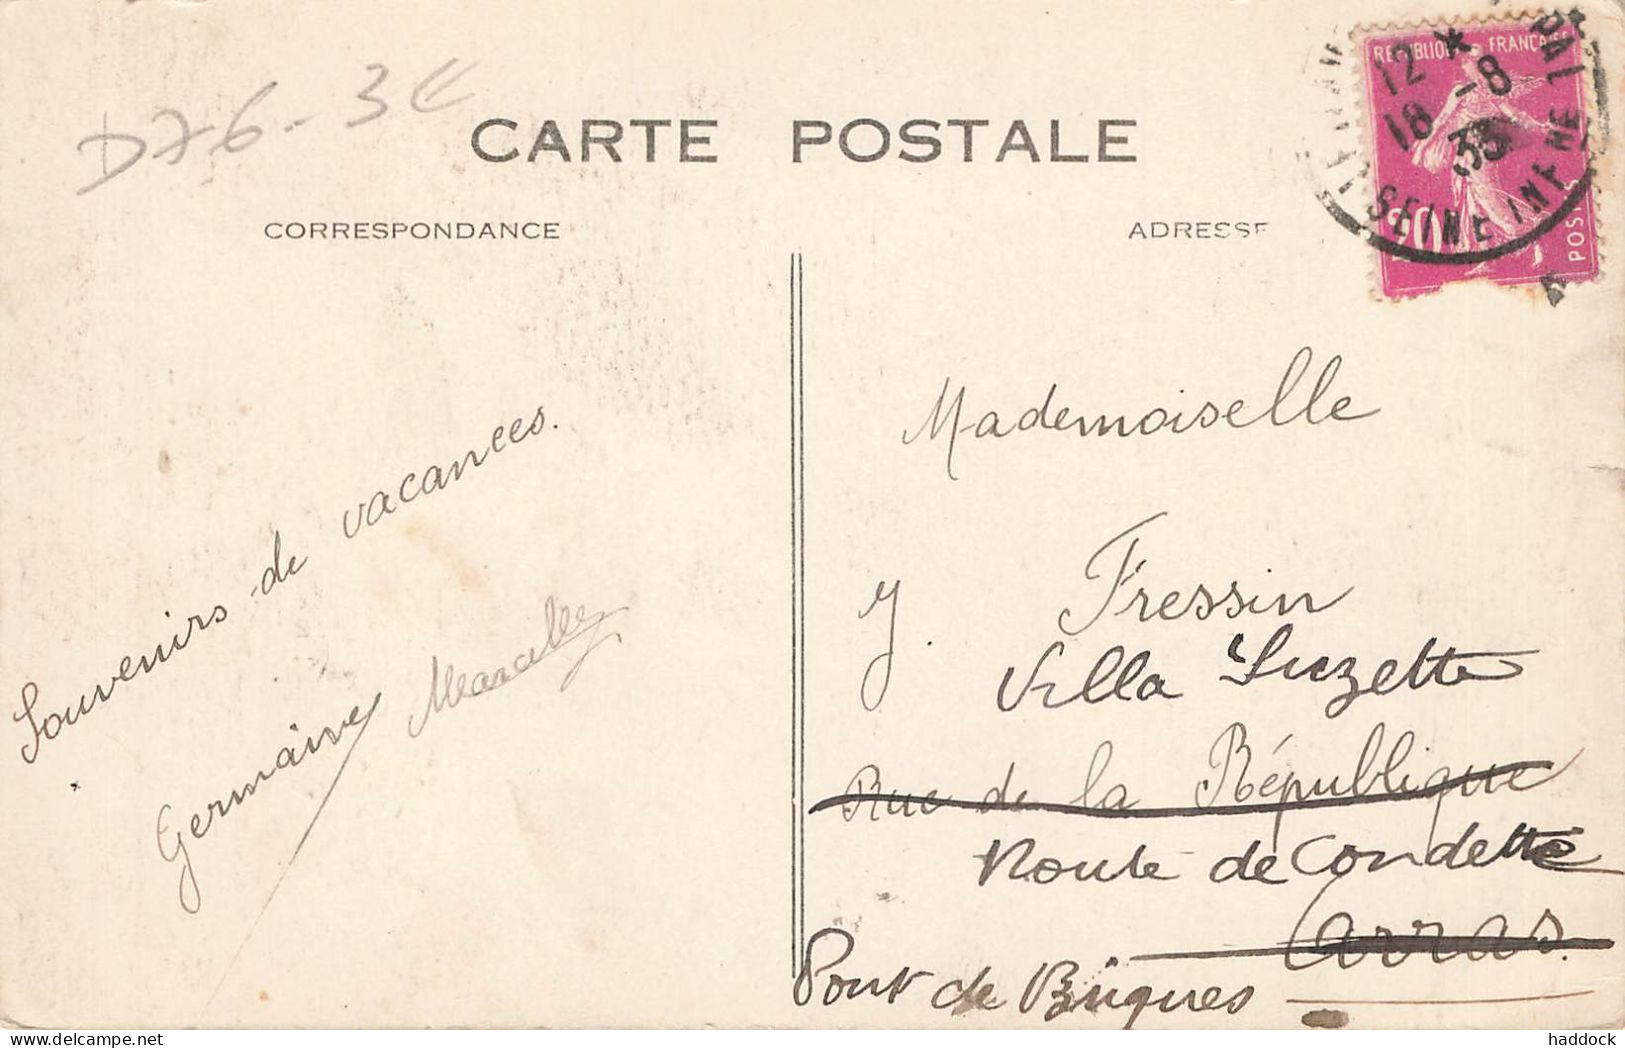 D76-3€
CARTE POSTALE
CORRESPONDANCE
ADRESSE
REPUBLIQUE FRANÇAISE
POSTES
12 *
18 -8
33
SEINE INFRE
Souvenirs de vacances.
Germaine
Mademoiselle
Y. Fressin
Villa Suzette
Rue de la République
Route de Condette
Arras.
Pont de Briques
haddock